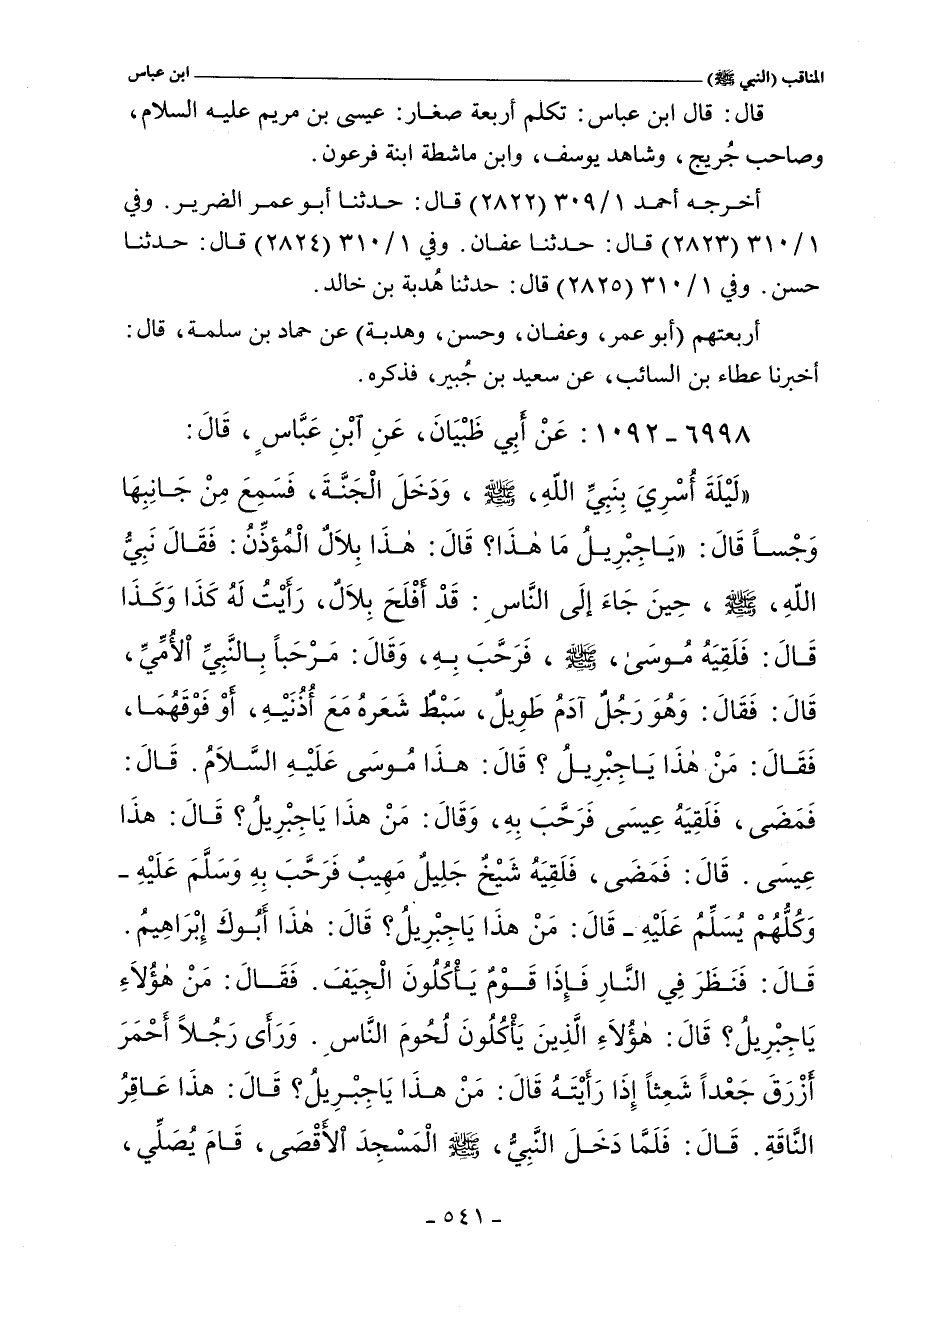 المناقب (النبي ﷺ) ابن عباس
قال: قال ابن عباس: تكلم أربعة صغار: عيسى بن مريم عليه السلام،
وصاحب جُريج، وشاهد يوسف، وابن ماشطة ابنة فرعون.
أخرجه أحمد ٣٠٩/١ (٢٨٢٢) قال: حدثنا أبو عمر الضرير. وفي
٣١٠/١ (٢٨٢٣) قال: حدثنا عفان. وفي ٣١٠/١ (٢٨٢٤) قال: حدثنا
حسن. وفي ٣١٠/١ (٢٨٢٥) قال: حدثنا هُدبة بن خالد.
أربعتهم (أبو عمر، وعفان، وحسن، وهدبة) عن حماد بن سلمة، قال:
أخبرنا عطاء بن السائب، عن سعيد بن جُبير، فذكره.
٦٩٩٨ - ١٠٩٢: عَنْ أَبِي ظَبْيَانَ، عَنِ ٱبْنِ عَبَّاسٍ، قَالَ:
«لَيْلَةَ أُسْرِيَ بِنَبِيِّ اللّهِ، ﷺ، وَدَخَلَ الْجَنَّةَ، فَسَمِعَ مِنْ جَانِبِهَا
وَجْساً قَالَ: «يَاجِبْرِيلُ مَا هٰذَا؟ قَالَ: هٰذَا بِلَالٌ الْمُؤَذِّنُ: فَقَالَ نَبِيُّ
اللّهِ، ﷺ، حِينَ جَاءَ إِلَى النَّاسِ: قَدْ أَفْلَحَ بِلَالٌ، رَأَيْتُ لَهُ كَذَا وَكَذَا
قَالَ: فَلَقِيَهُ مُوسَىٰ، ﷺ، فَرَحَّبَ بِهِ، وَقَالَ: مَرْحَباً بِالنَّبِيِّ ٱلْأُمِّيِّ،
قَالَ: فَقَالَ: وَهُوَ رَجُلٌ آدَمُ طَوِيلٌ، سَبْطٌ شَعَرُهُ مَعَ أُذُنَيْهِ، أَوْ فَوْقَهُمَا،
فَقَالَ: مَنْ هٰذَا يَاجِبْرِيلُ؟ قَالَ: هذَا مُوسَى عَلَيْهِ السَّلَامُ. قَالَ:
فَمَضَى، فَلَقِيَهُ عِيسَى فَرَحَّبَ بِهِ، وَقَالَ: مَنْ هذَا يَاجِبْرِيلُ؟ قَالَ: هذَا
عِيسَى. قَالَ: فَمَضَى، فَلَقِيَهُ شَيْخٌ جَلِيلٌ مَهِيبٌ فَرَحَّبَ بِهِ وَسَلَّمَ عَلَيْهِ -
وَكُلُّهُمْ يُسَلِّمُ عَلَيْهِ - قَالَ: مَنْ هذَا يَاجِبْرِيلُ؟ قَالَ: هٰذَا أَبُوكَ إِبْرَاهِيمُ.
قَالَ: فَنَظَرَ فِي النَّارِ فَإِذَا قَوْمٌ يَأْكُلُونَ الْجِيَفَ. فَقَالَ: مَنْ هٰؤُلَاءِ
يَاجِبْرِيلُ؟ قَالَ: هٰؤُلَاءِ الَّذِينَ يَأْكُلُونَ لُحُومَ النَّاسِ. وَرَأَى رَجُلاً أَحْمَرَ
أَزْرَقَ جَعْداً شَعِثاً إِذَا رَأَيْتَهُ قَالَ: مَنْ هذَا يَاجِبْرِيلُ؟ قَالَ: هذَا عَاقِرُ
النَّاقَةِ. قَالَ: فَلَمَّا دَخَلَ النَّبِيُّ، ﷺ الْمَسْجِدَ ٱلْأَقْصَى، قَامَ يُصَلِّي،
- ٥٤١ -